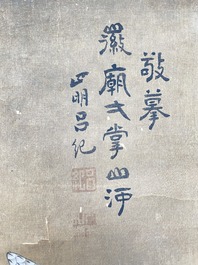 敬摹
徽廟掌山河
四明呂紀